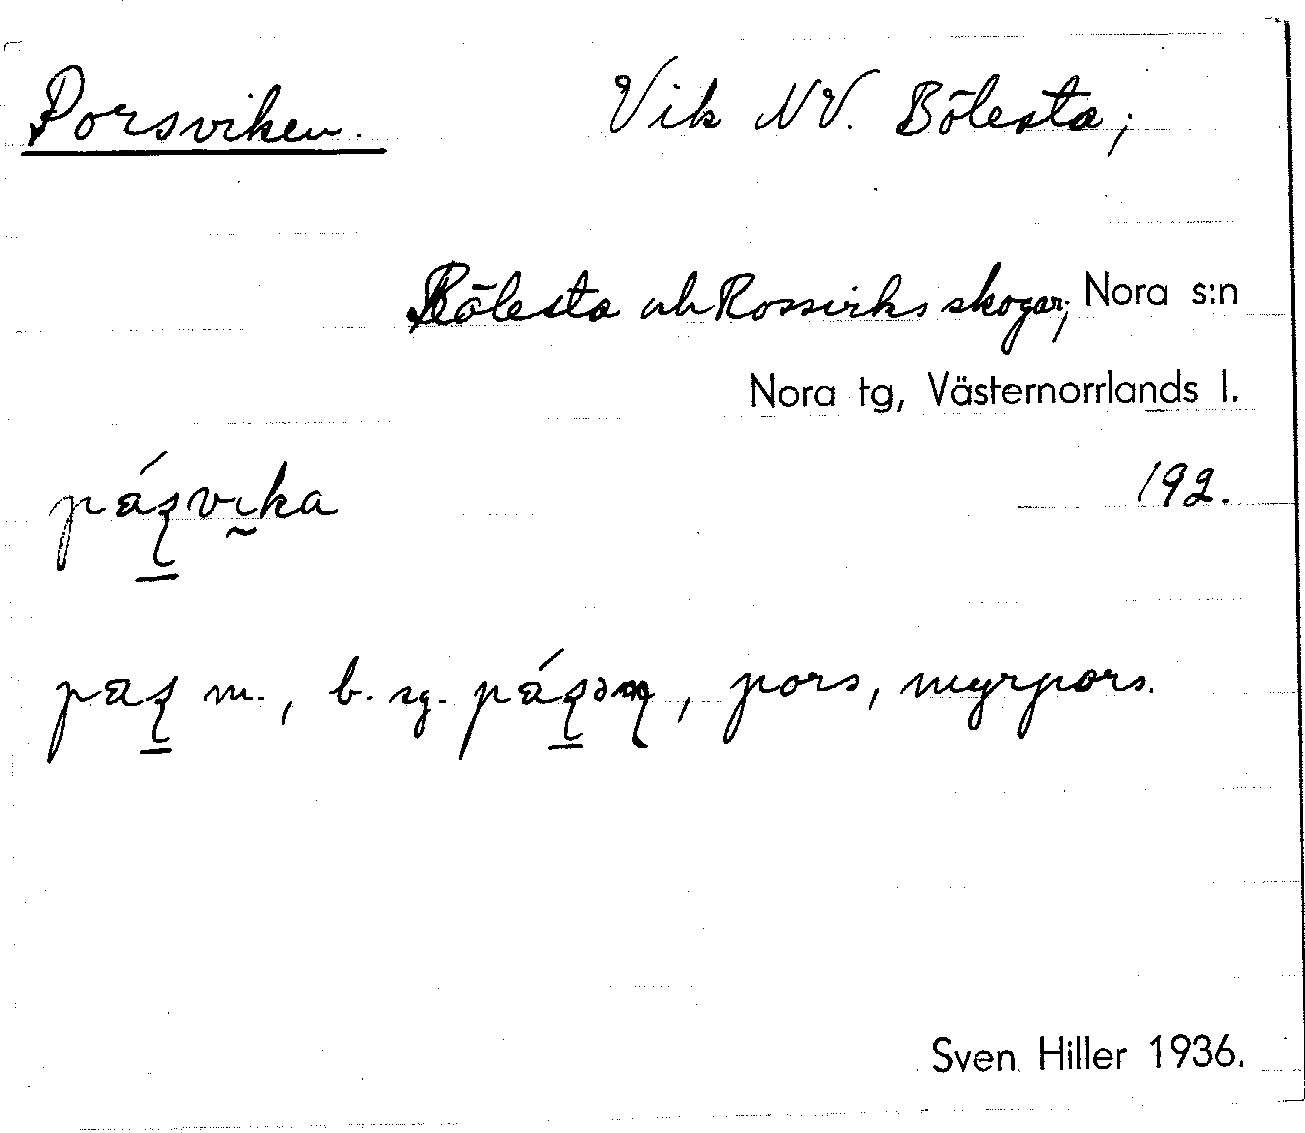 Porsviken. Vik NV. Bölesta;
Bölesta och Rossviks skogar; Nora s:n
Nora tg, Västernorrlands l.
192.
m., b. sg. , pors, myrpors.
Sven Hiller 1936.